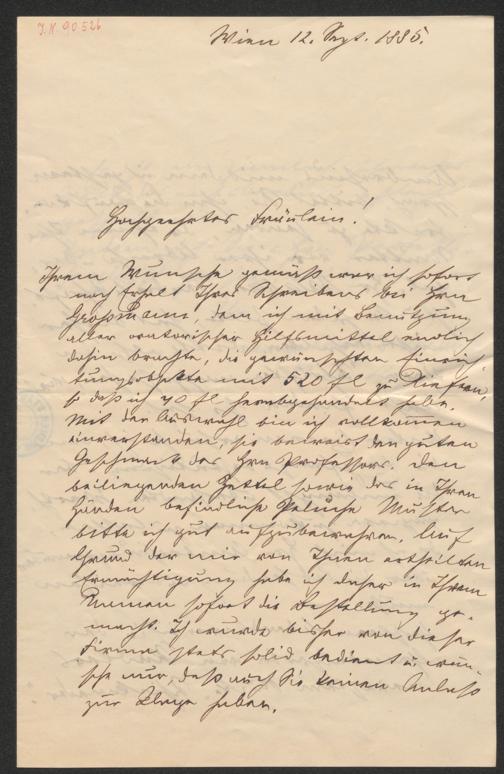 J.N. 90526
Wien 12. Sept. 1885.
Hochgeehrtes Fräulein!
Ihrem Wunsche gemäß war ich sofort
nach Erhalt Ihres Schreibens bei Hrn
Großmann, dem ich mit Benützung
aller oratorischer Hilfsmittel endlich
dahin brachte, die gewünschten Einrich
tungsobjekte mit 520 fl zu liefern,
so daß ich 40 fl herabgehandelt habe.
Mit der Auswahl bin ich vollkommen
einverstanden, sie beweist den guten
Geschmack des Hrn Professors. Den
beiliegenden Zettel sowie das in Ihren
Händen befindliche Peluche Muster
bitte ich gut aufzubewahren. Auf
Grund der mir von Ihnen ertheilten
Ermächtigung habe ich daher in Ihrem
Namen sofort die Bestellung ge-
macht. Ich wurde bisher von dieser
Firma stets solid bedient u. wün-
sche nur, daß auch Sie keinen Anlaß
zur Klage haben.